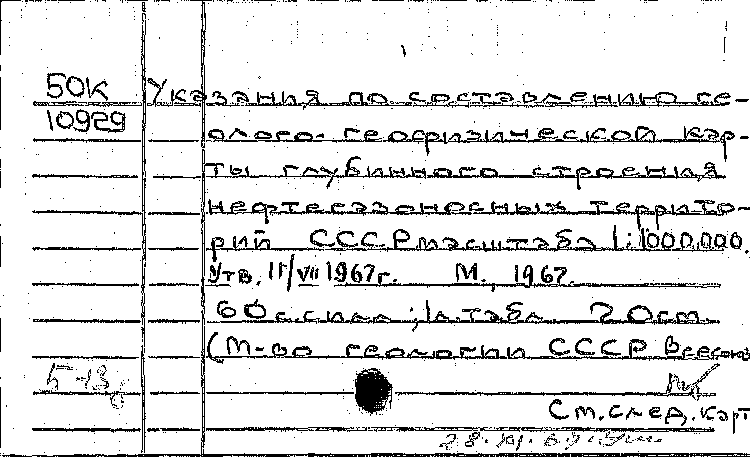 50К Указания по составлению ге-
10929 олого-геофизической кар-
ты глубинного строения
нефтегазоносных террито-
рий СССР масштаба 1:1000.000.
Утв. 11/VII 1967г. М., 1967.
60 с. с илл.; 1 л. табл. 20 см.
(М-во геологии СССР Всесоюз
5-13
См. след. карт